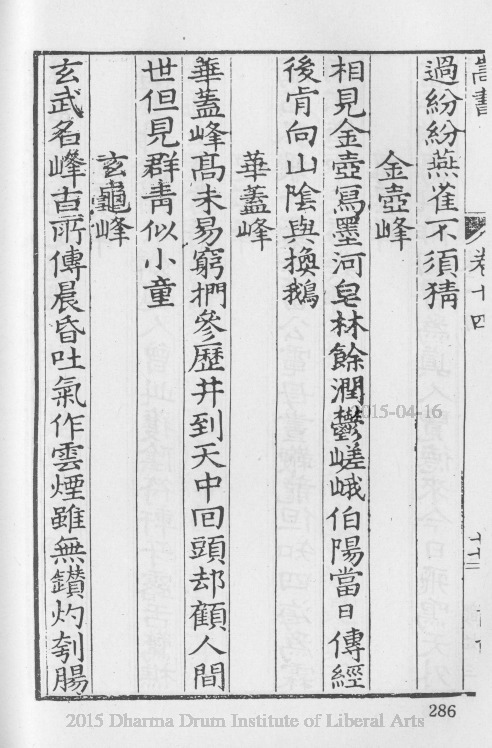 嵩書
卷十四
過紛紛燕雀不須猜
金壺峰
相見金壺寫墨河皂林餘潤鬱嵯峨伯陽當日傳經
後肯向山陰與換鵝
華蓋峰
華蓋峰髙未易窮捫參歷井到天中囘頭却顧人間
世但見群青似小童
玄龜峰
玄武名峰古所傳晨昏吐氣作雲煙雖無鑚灼刳腸
2015-04-16
286
2015 Dharma Drum Institute of Liberal Arts